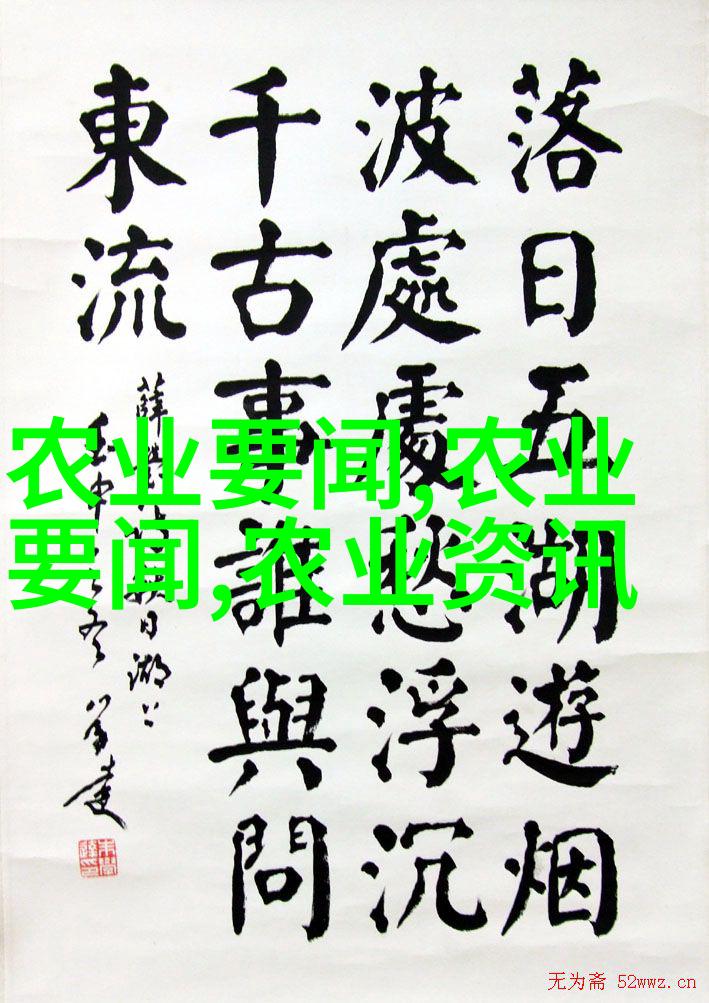 落日五湖遊烟
波處處愁浮沉
千古事誰與問
東流
薛 日湖上
壬申 冬 學達
农业要闻,农业
要闻,农业资讯
无为斋 52wwz.cn